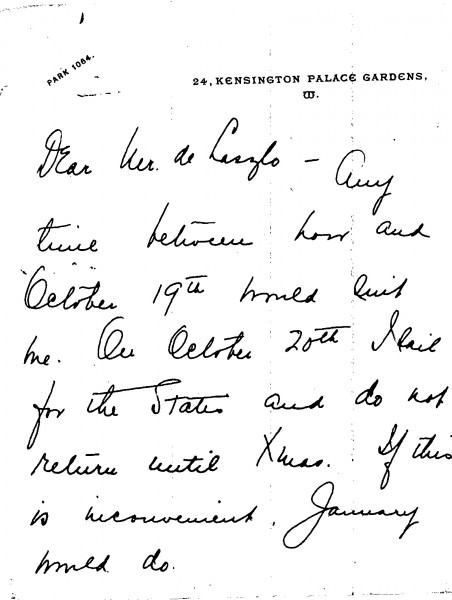 PARK 1064.
24, KENSINGTON PALACE GARDENS,
W.
Dear Mr. de Laszlo – Any
time between now and
October 19th would suit
me. On October 20th I sail
for the States and do not
return until Xmas. If this
is inconvenient, January
would do.